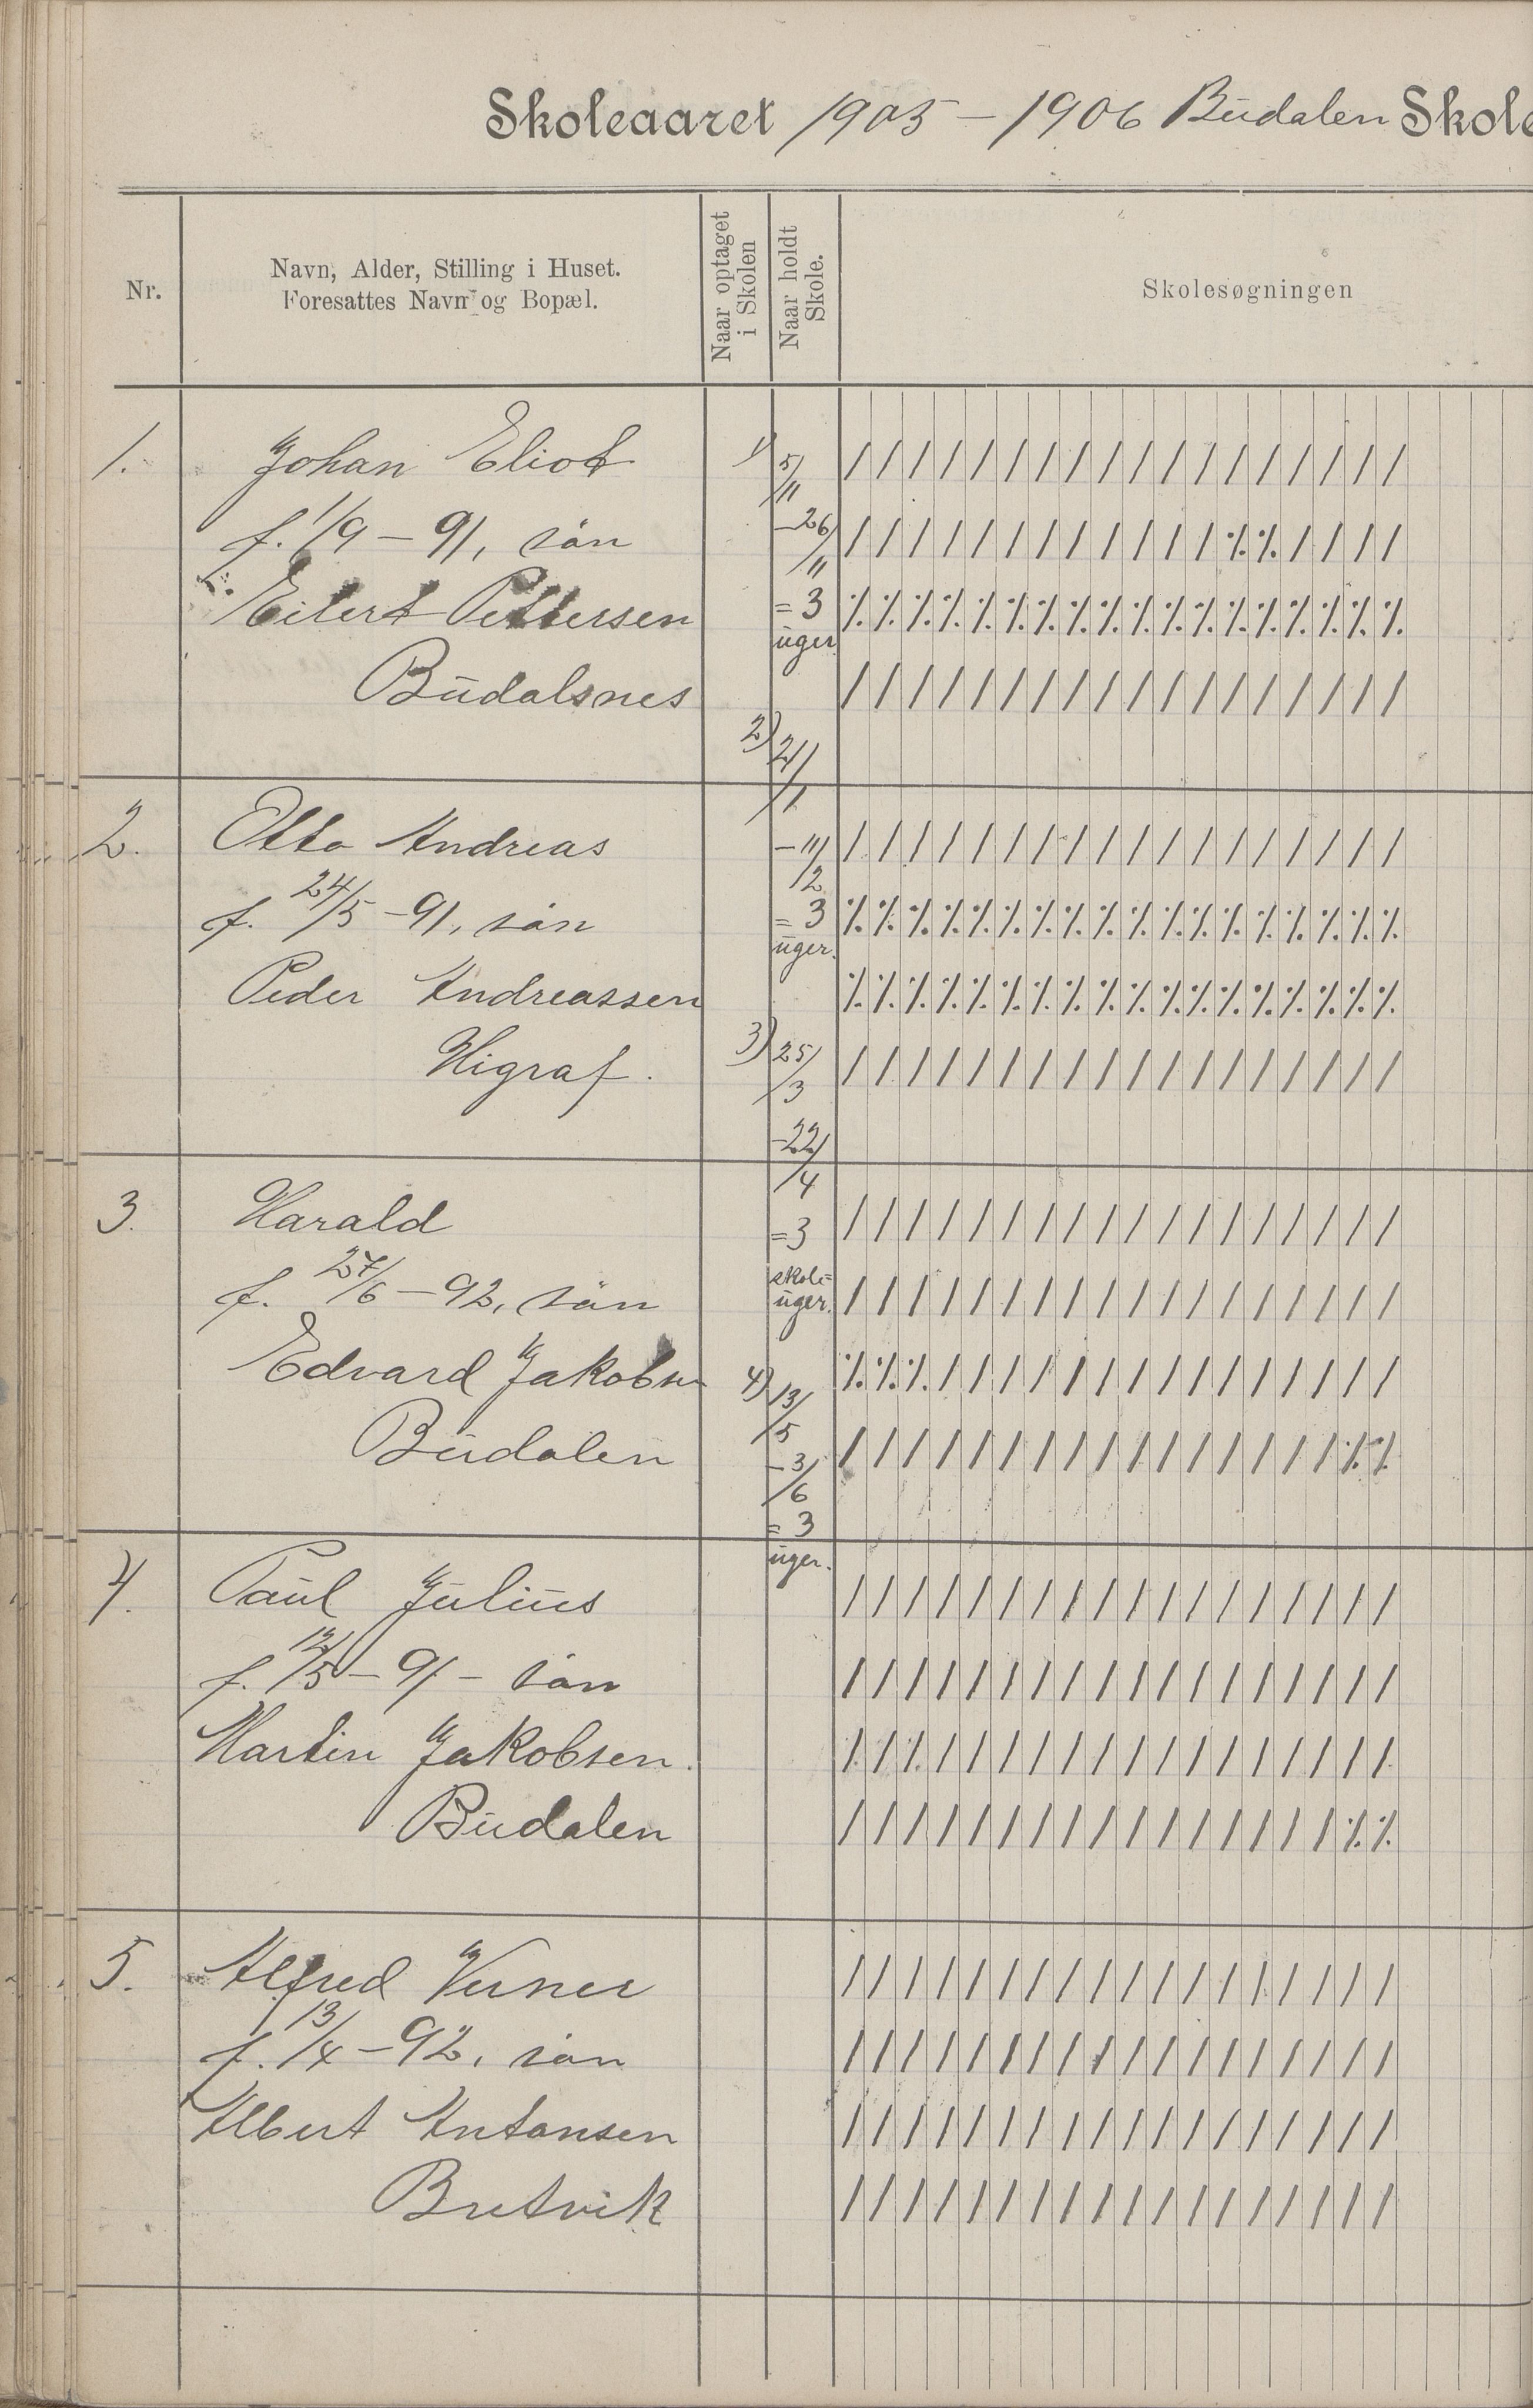 Skoleaaret 1905 - 1906 Budalen Skole
Nr.
Navn, Alder, Stilling i Huset.
Foresattes Navn og Bopæl.
Naar optaget
i Skolen
Naar holdt
Skole.
Skolesøgningen
1. Johan Eliot
f. 1/9 - 91, sön
Eilert Pettersen
Budalsnes
2. Otto Andreas
f. 24/5 - 91, sön
Peder Andreassen
Higraf.
3. Harald
f. 27/6 - 92, sön
Edvard Jakobsen
Budalen
4. Paul Julius
f. 12/5 - 91 - sön
Martin Jakobsen.
Budalen
5. Alfred Verner
f. 13/4 - 92, sön
Albert Antonsen
Bretvik
1) 5/11
- 26/11
= 3
uger
2) 21/1
- 11/2
= 3
uger.
3) 25/3
- 22/4
= 3
skole=
uger.
4) 13/5
- 3/6
= 3
uger.